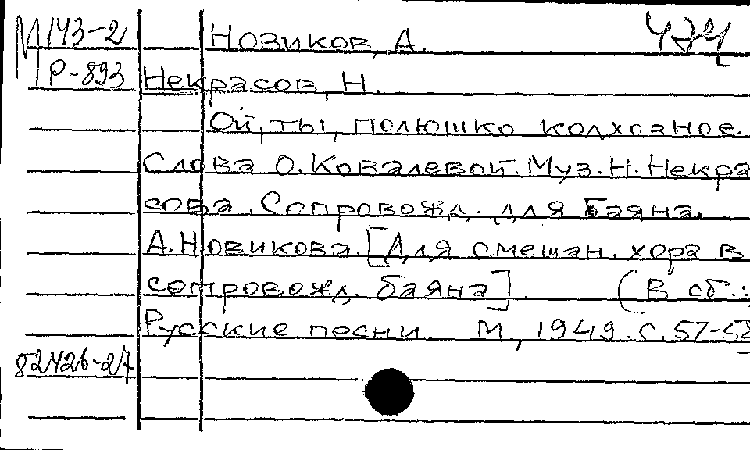 М 143-2 Новиков, А.
Р-893 Некрасов, Н.
Ой, ты, полюшко колхозное.
Слова О. Ковалевой. Муз. Н. Некра
сова. Сопровожд. для баяна
А. Новикова. [Для смешан. хора в
сопровожд. баяна]. (В сб.:
Русские песни. М., 1949. с. 57-58
82426-27